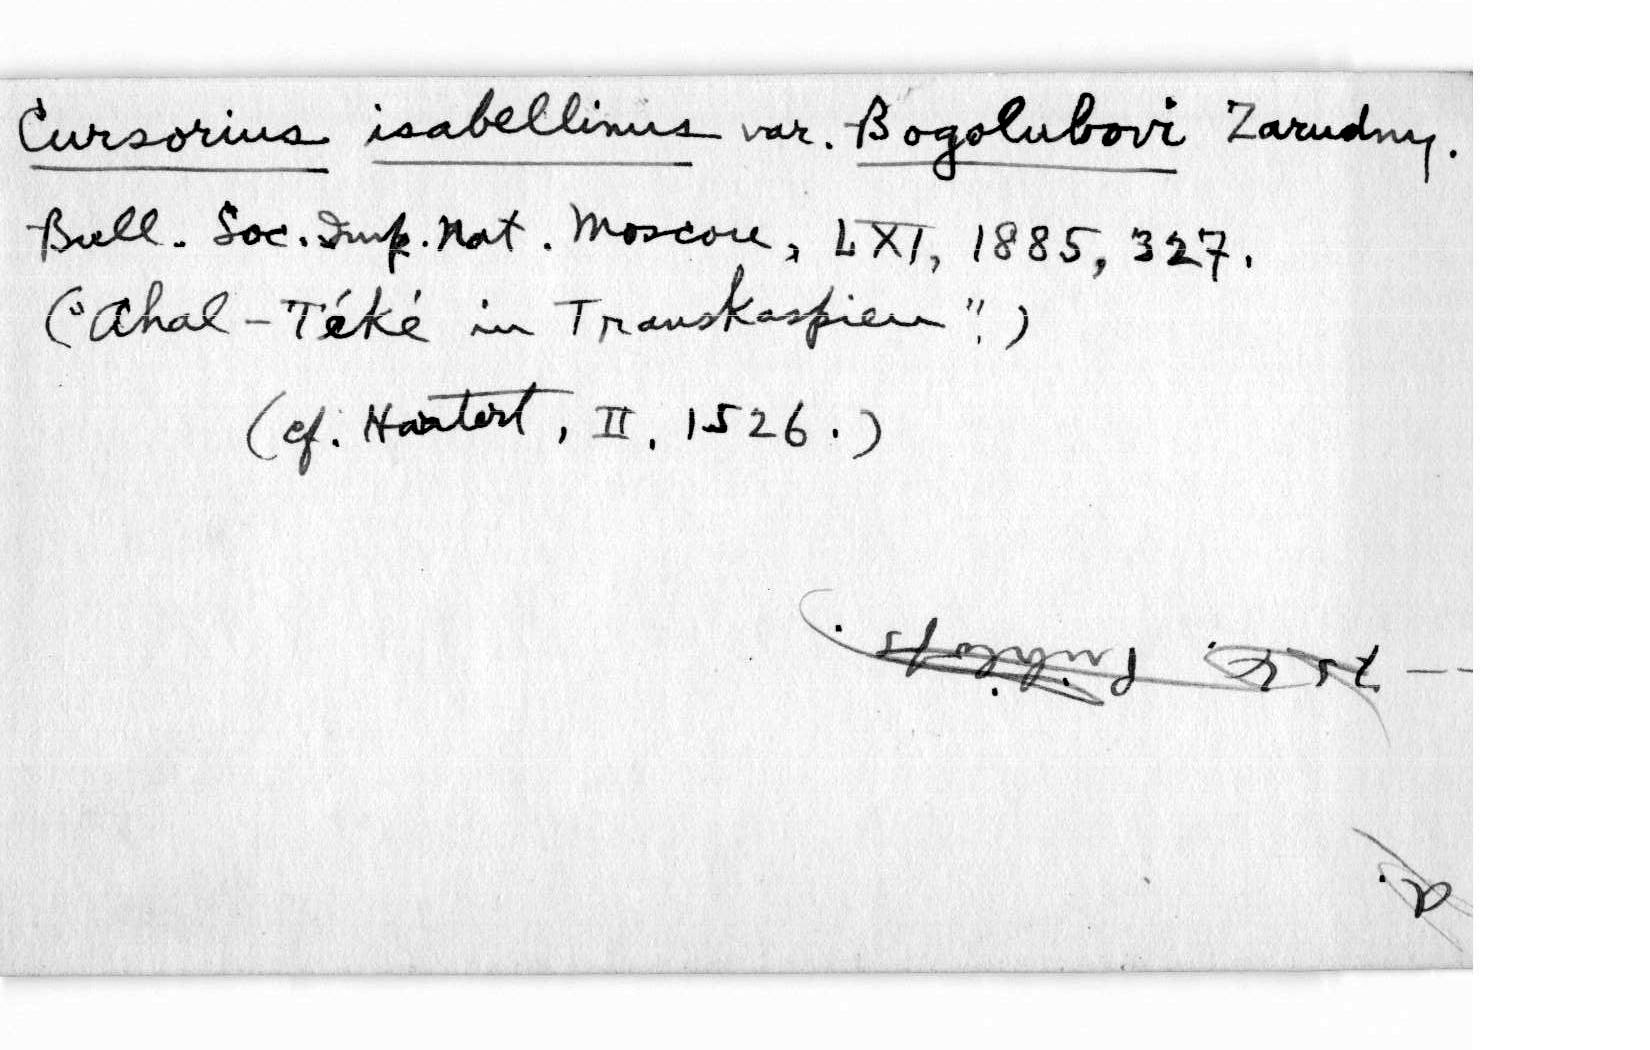 Cursorius isabellinus var. Bogolubovi Zarudny.
Bull. Soc. Imp. Nat. Moscou, LXI, 1885, 327.
("Ahal-Téké in Transkaspien".)
(cf. Hartert, II, 1526.)